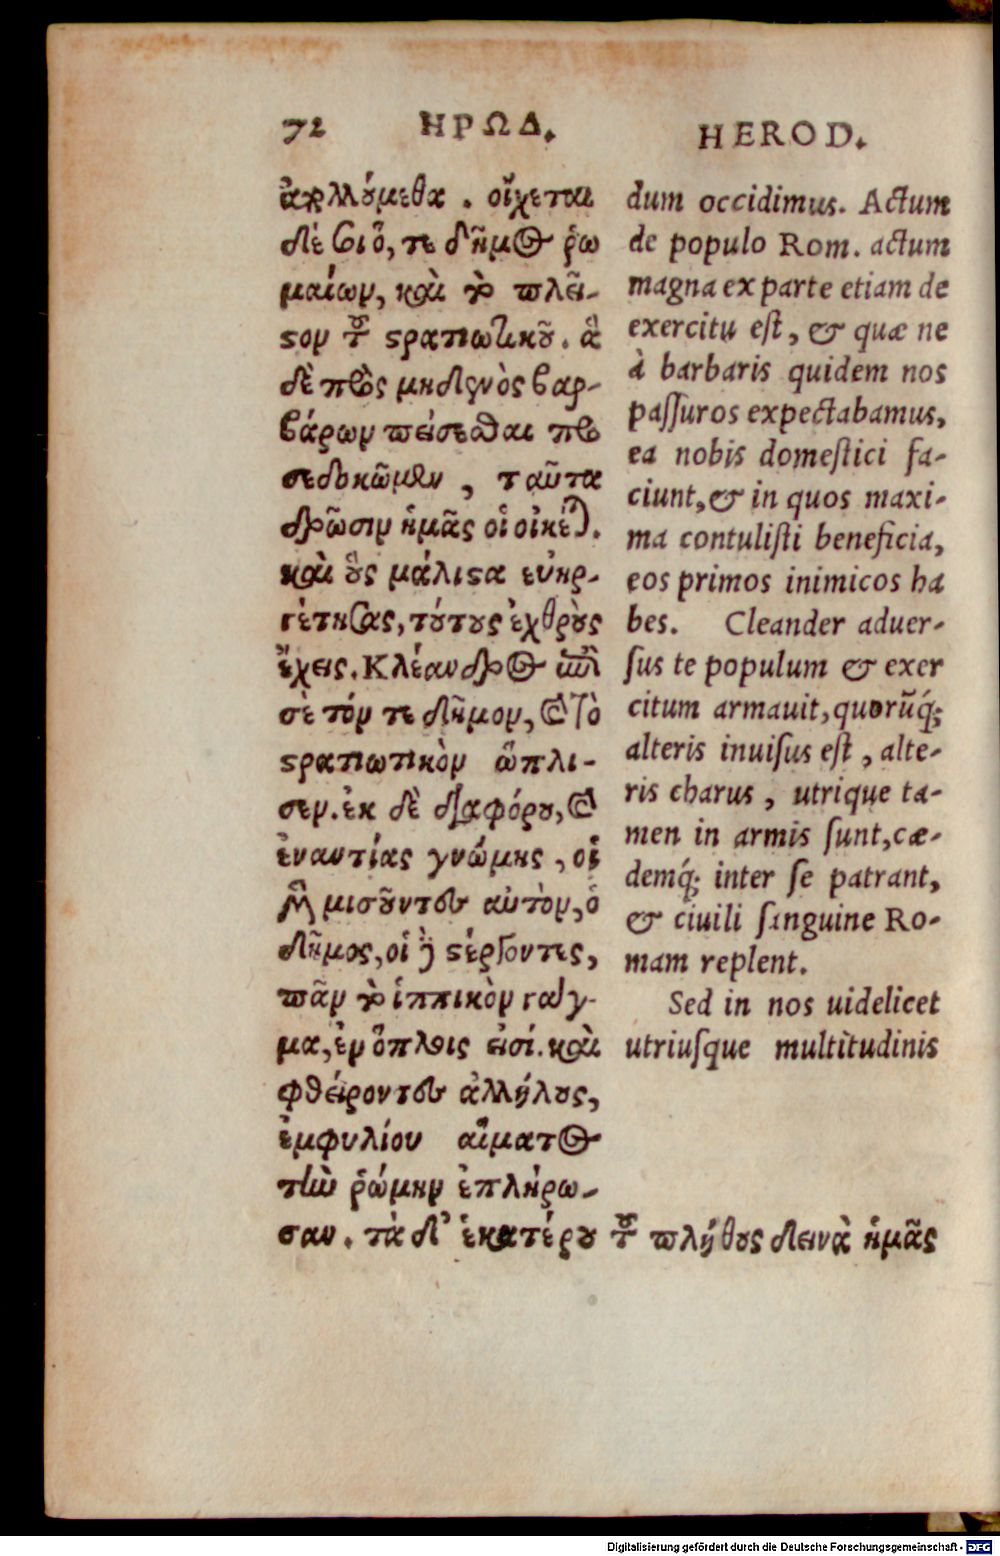 72 ΗΡΩΔ. HEROD.
ἀπολλύμεθα. οἴχεται
δέ σοι ὅ, τε δῆμος ῥω
μαίων, καὶ τὸ πλεῖ-
στον τοῦ στρατιωτικοῦ. ἃ
δὲ πρὸς μηδενὸς βαρ-
βάρων πείσεσθαι προ
σεδοκῶμεν, ταῦτα
δρῶσιν ἡμᾶς οἱ οἰκέται.
καὶ οὓς μάλιστα εὐηρ-
γέτησας, τούτους ἐχθροὺς
ἔχεις. Κλέανδρος ἐπὶ
σὲ τόν τε δῆμον, καὶ τὸ
στρατιωτικὸν ὥπλι-
σεν. ἐκ δὲ διαφόρου, καὶ
ἐναντίας γνώμης, οἱ
μὲν μισοῦντες αὐτὸν, ὁ
δῆμος, οἱ δὲ στέργοντες,
πᾶν τὸ ἱππικὸν ταγ-
μα, ἐν ὅπλοις εἰσί. καὶ
φθείροντες ἀλλήλους,
ἐμφυλίου αἵματος
τὴν ῥώμην ἐπλήρω-
σαν. τὰ δ' ἑκατέρου τοῦ πλήθους δεινὰ ἡμᾶς
dum occidimus. Actum
de populo Rom. actum
magna ex parte etiam de
exercitu est, & quæ ne
à barbaris quidem nos
passuros expectabamus,
ea nobis domestici fa-
ciunt, & in quos maxi-
ma contulisti beneficia,
eos primos inimicos ha
bes. Cleander aduer-
sus te populum & exer
citum armauit, quorūq́;
alteris inuisus est, alte-
ris charus, utrique ta-
men in armis sunt, cæ-
demq́; inter se patrant,
& ciuili sanguine Ro-
mam replent.
Sed in nos uidelicet
utriusque multitudinis
Digitalisierung gefördert durch die Deutsche Forschungsgemeinschaft - DFG